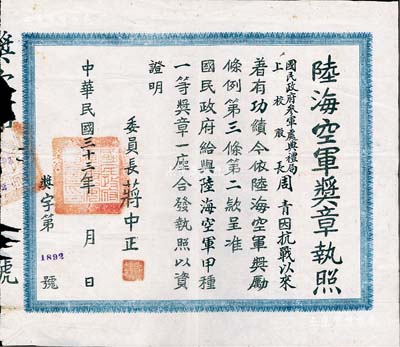 陸海空軍獎章執照
國民政府參軍處典禮局
上校股長周青因抗戰以來
著有功績今依陸海空軍獎勵
條例第三條第二款呈准
國民政府給與陸海空軍甲種
一等獎章一座合發執照以資
證明
委員長蔣中正
中華民國三十三年 月 日
獎字第1892號